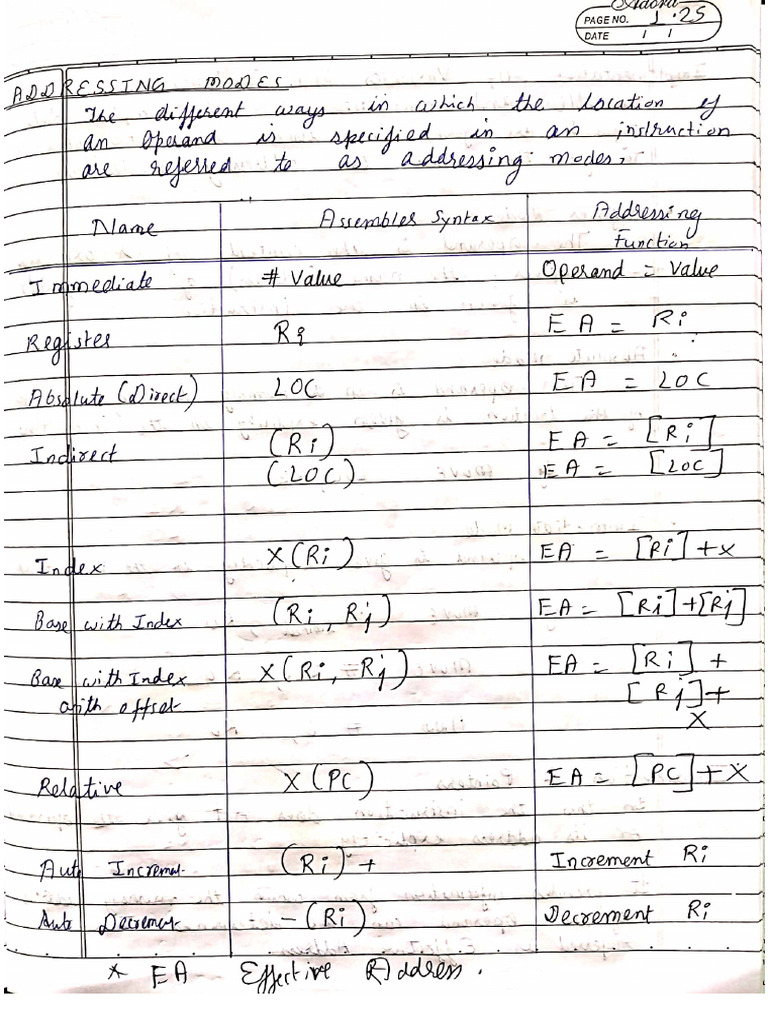 Adora
PAGE NO. 1.25
DATE / /
ADDRESSING MODES
The different ways in which the location of
an operand is specified in an instruction
are referred to as addressing modes.
Name Assembler Syntax Addressing
Function
Immediate # Value Operand = Value
Register Ri EA = Ri
Absolute (Direct) LOC EA = LOC
Indirect (Ri) EA = [Ri]
(LOC) EA = [LOC]
Index X(Ri) EA = [Ri] + X
Base with Index (Ri, Rj) EA = [Ri]+[Rj]
Base with Index X(Ri, Rj) EA = [Ri] +
with offset [Rj]+
X
Relative X(PC) EA = [PC] + X
Auto Increment (Ri)+ Increment Ri
Auto Decrement -(Ri) Decrement Ri
* EA Effective Address.